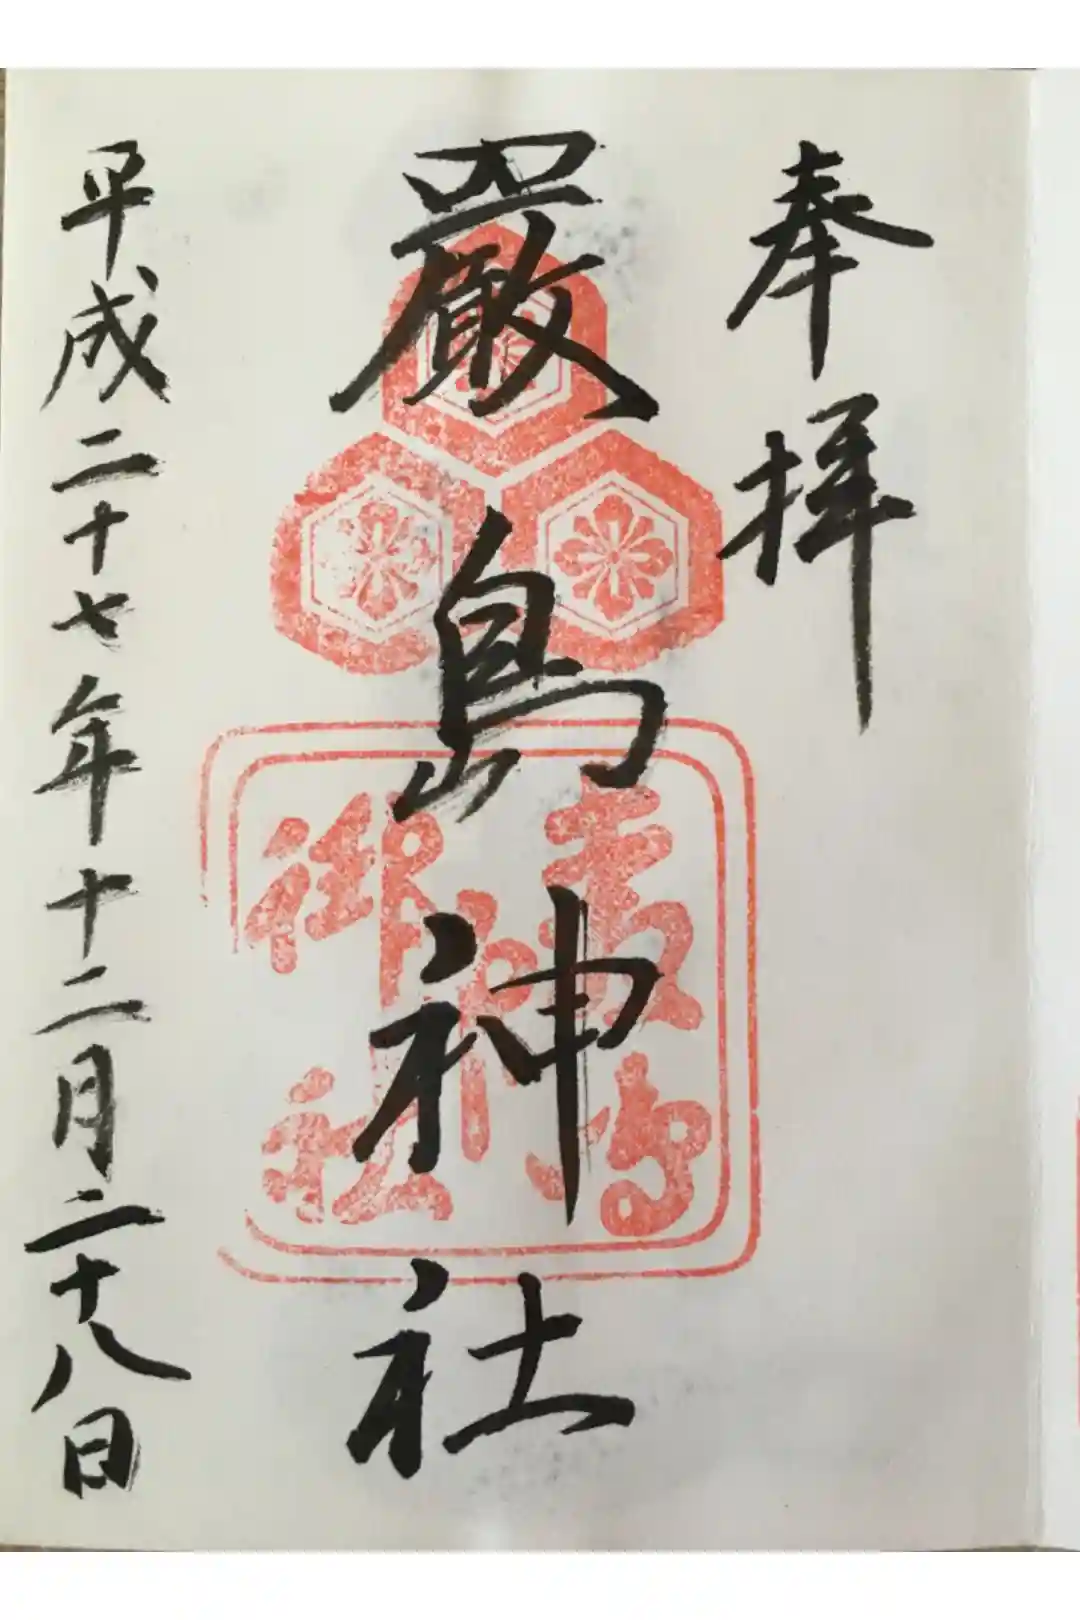 奉拝
嚴島神社
平成二十七年十二月二十八日
嚴島
神
御社